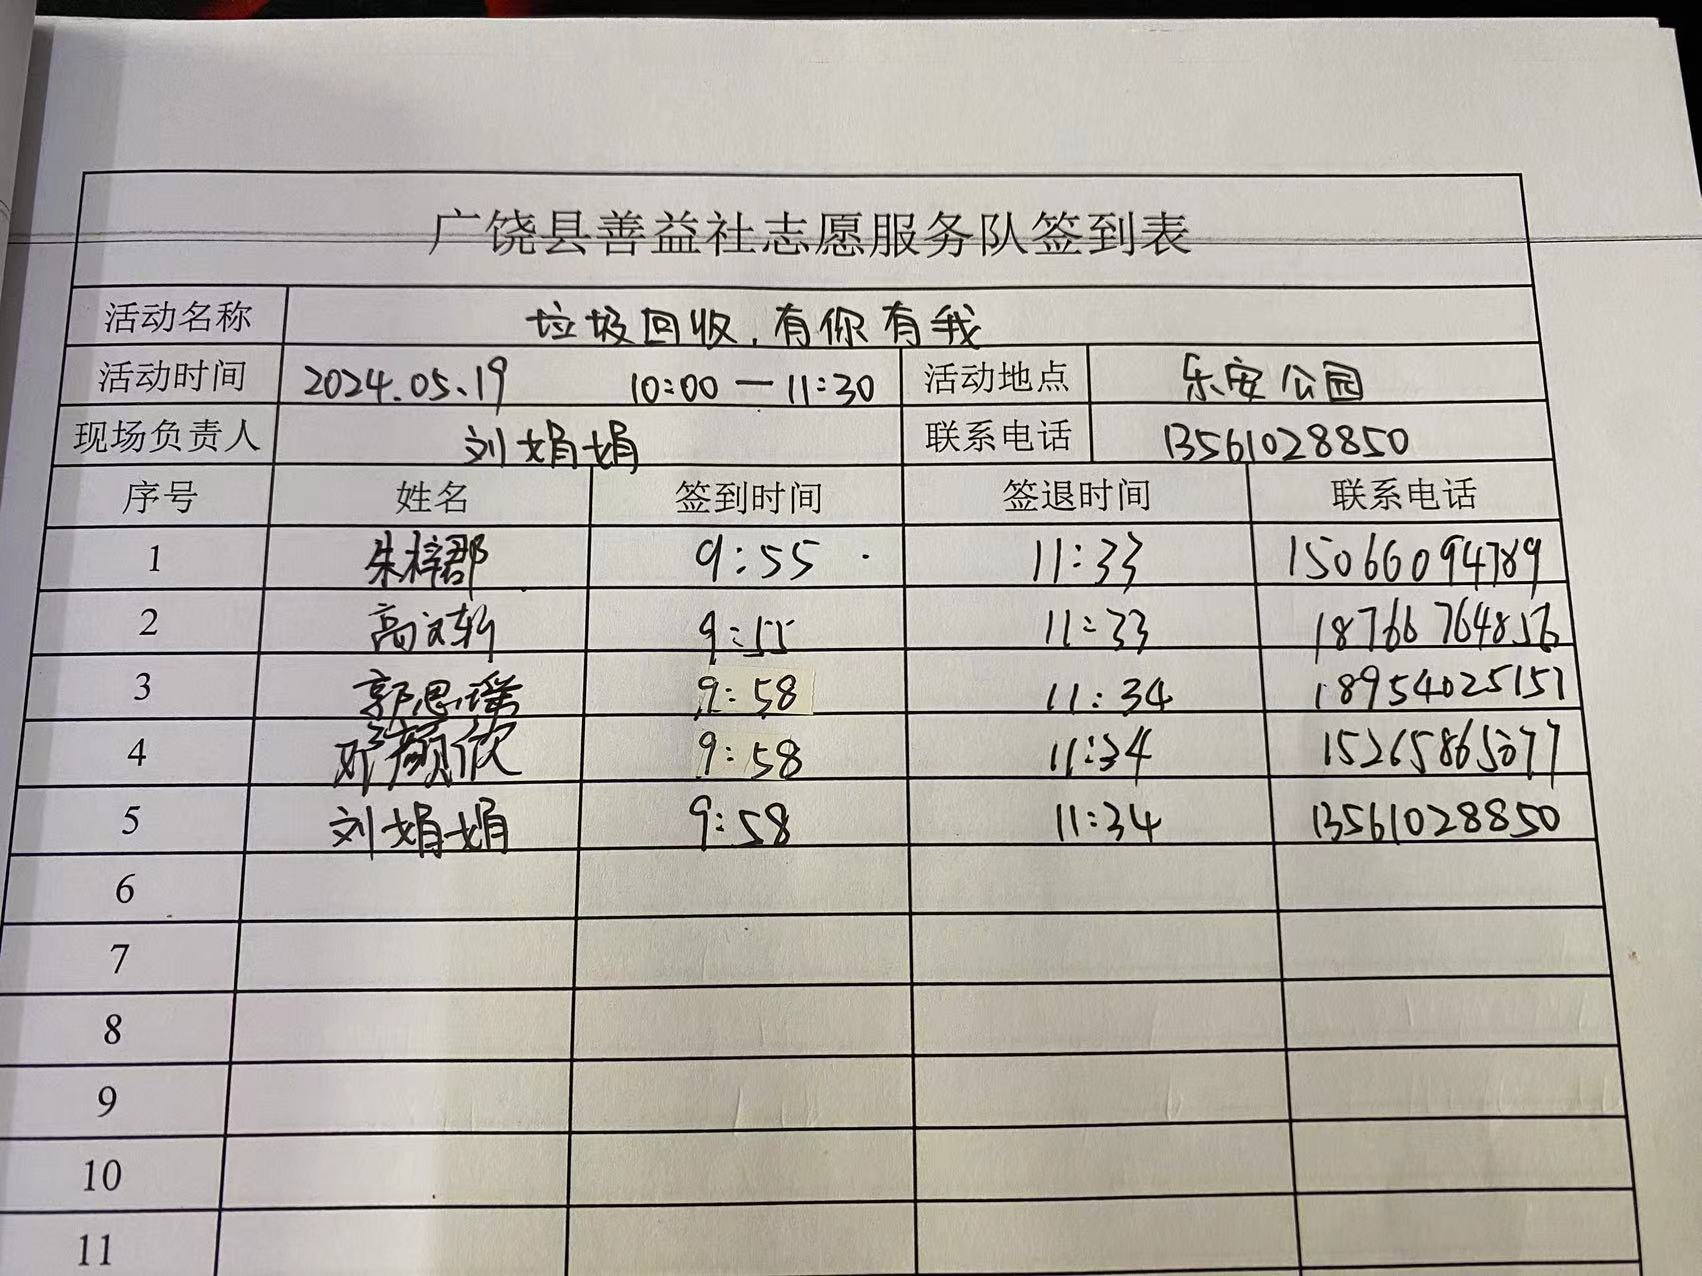 广饶县善益社志愿服务队签到表
活动名称 垃圾回收,有你有我
活动时间 2024.05.19 10:00—11:30 活动地点 乐安公园
现场负责人 刘娟娟 联系电话 13561028850
序号 姓名 签到时间 签退时间 联系电话
1 朱梓郡 9:55 11:33 15066094789
2 高文轩 9:55 11:33 18766764856
3 郭思瑶 9:58 11:34 18954025151
4 邓颜依 9:58 11:34 15265865077
5 刘娟娟 9:58 11:34 13561028850
6
7
8
9
10
11